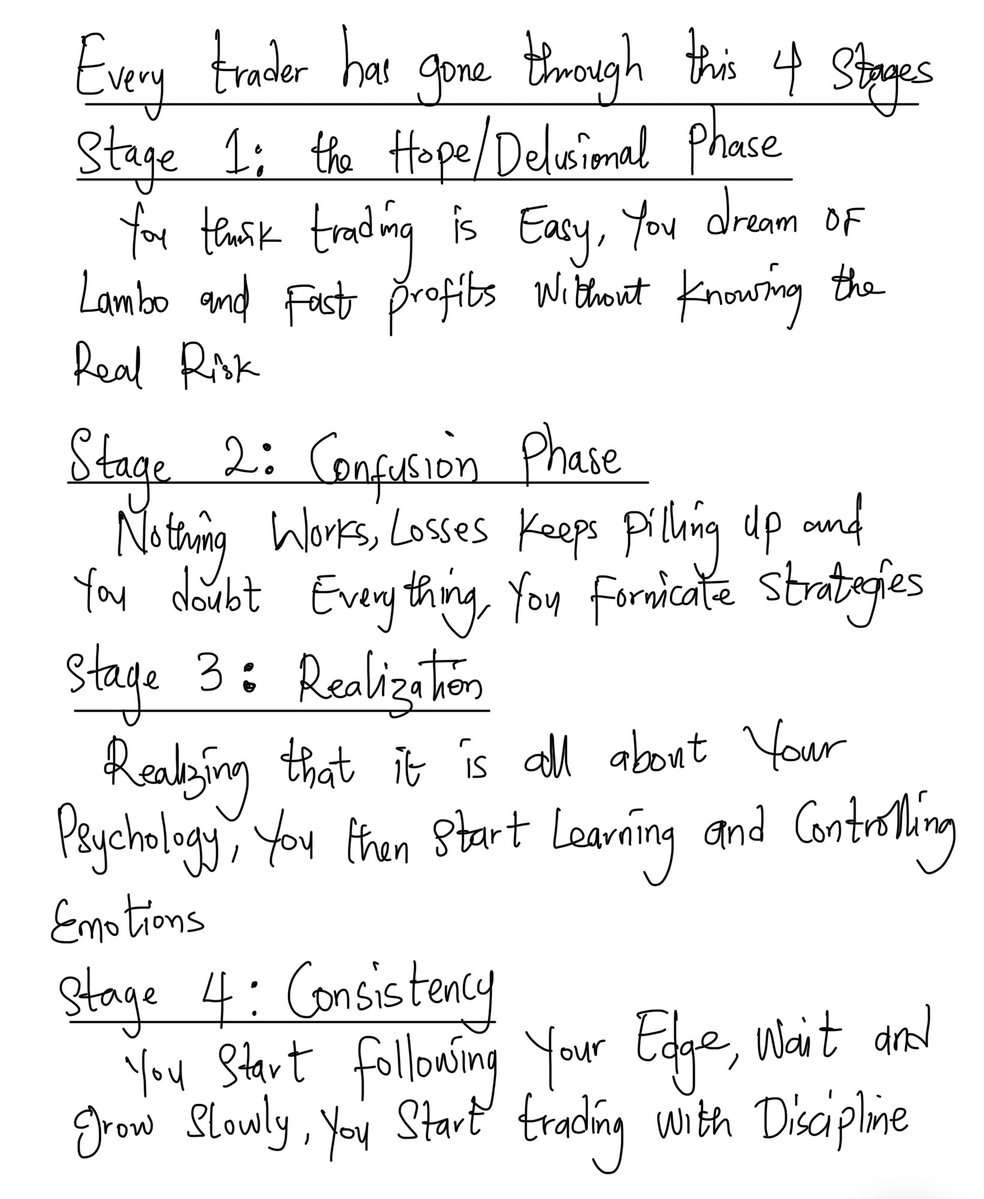 Every trader has gone through this 4 Stages
Stage 1: the Hope/Delusional Phase
You think trading is Easy, You dream OF
Lambo and Fast profits Without Knowing the
Real Risk
Stage 2: Confusion Phase
Nothing Works, Losses Keeps Pilling Up and
You doubt Everything, You Fornicate Strategies
Stage 3: Realization
Realizing that it is all about Your
Psychology, You then Start Learning and Controlling
Emotions
Stage 4: Consistency
You Start Following Your Edge, Wait and
grow Slowly, You Start trading with Discipline